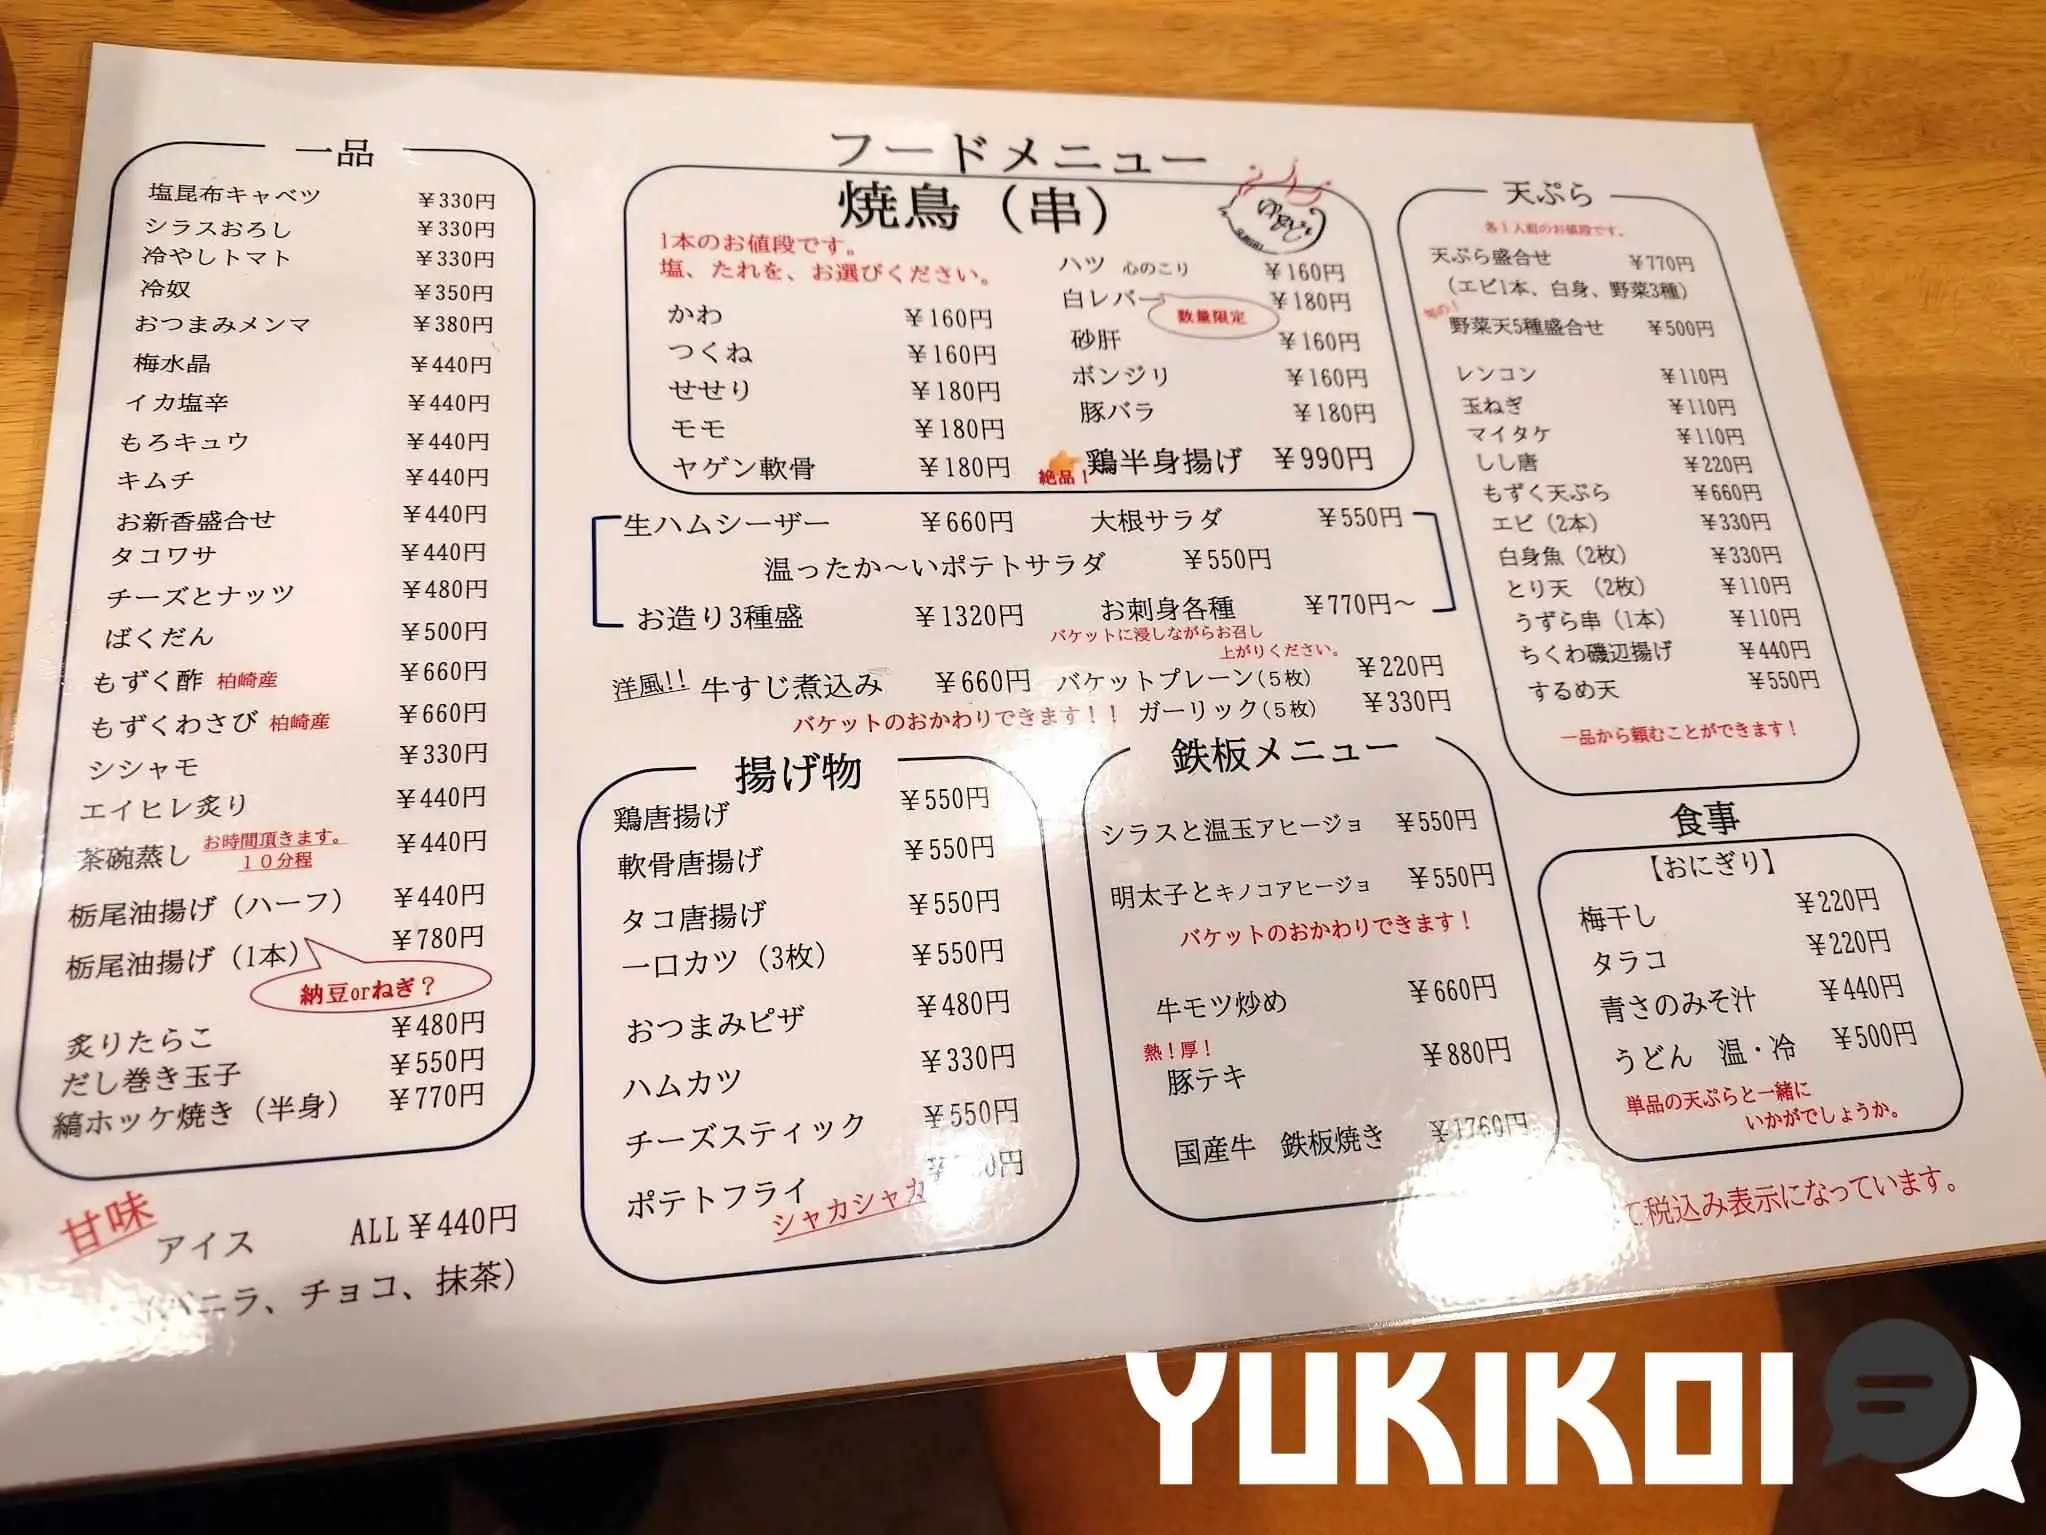 フードメニュー
一品
塩昆布キャベツ ￥330円
シラスおろし ￥330円
冷やしトマト ￥330円
冷奴 ￥350円
おつまみメンマ ￥380円
梅水晶 ￥440円
イカ塩辛 ￥440円
もろキュウ ￥440円
キムチ ￥440円
お新香盛合せ ￥440円
タコワサ ￥440円
チーズとナッツ ￥480円
ばくだん ￥500円
もずく酢 柏崎産 ￥660円
もずくわさび 柏崎産 ￥660円
シシャモ ￥330円
エイヒレ炙り ￥440円
茶碗蒸し お時間頂きます。 ￥440円
１０分程
栃尾油揚げ（ハーフ） ￥440円
栃尾油揚げ（1本） ￥780円
納豆orねぎ？
炙りたらこ ￥480円
だし巻き玉子 ￥550円
縞ホッケ焼き（半身） ￥770円
甘味
アイス ALL￥440円
バニラ、チョコ、抹茶）
焼鳥（串）
1本のお値段です。
塩、たれを、お選びください。
かわ ￥160円
つくね ￥160円
せせり ￥180円
モモ ￥180円
ヤゲン軟骨 ￥180円
ハツ 心のこり ￥160円
白レバー ￥180円
数量限定
砂肝 ￥160円
ボンジリ ￥160円
豚バラ ￥180円
絶品！ 鶏半身揚げ ￥990円
生ハムシーザー ￥660円 大根サラダ ￥550円
温ったか～いポテトサラダ ￥550円
お造り3種盛 ￥1320円 お刺身各種 ￥770円～
バケットに浸しながらお召し
上がりください。
洋風!! 牛すじ煮込み ￥660円 バケットプレーン(５枚) ￥220円
バケットのおかわりできます！！ ガーリック(５枚) ￥330円
揚げ物
鶏唐揚げ ￥550円
軟骨唐揚げ ￥550円
タコ唐揚げ ￥550円
一口カツ（3枚） ￥550円
おつまみピザ ￥480円
ハムカツ ￥330円
チーズスティック ￥550円
ポテトフライ
シャカシャカ
鉄板メニュー
シラスと温玉アヒージョ ￥550円
明太子とキノコアヒージョ ￥550円
バケットのおかわりできます！
牛モツ炒め ￥660円
熱！厚！
豚テキ ￥880円
国産牛 鉄板焼き ￥1760円
天ぷら
各１人前のお値段です。
天ぷら盛合せ ￥770円
（エビ1本、白身、野菜3種）
旬の！
野菜天5種盛合せ ￥500円
レンコン ￥110円
玉ねぎ ￥110円
マイタケ ￥110円
しし唐 ￥220円
もずく天ぷら ￥660円
エビ（2本） ￥330円
白身魚（2枚） ￥330円
とり天（2枚） ￥110円
うずら串（1本） ￥110円
ちくわ磯辺揚げ ￥440円
するめ天 ￥550円
一品から頼むことができます！
食事
【おにぎり】
梅干し ￥220円
タラコ ￥220円
青さのみそ汁 ￥440円
うどん 温・冷 ￥500円
単品の天ぷらと一緒に
いかがでしょうか。
て税込み表示になっています。
YUKIKOI